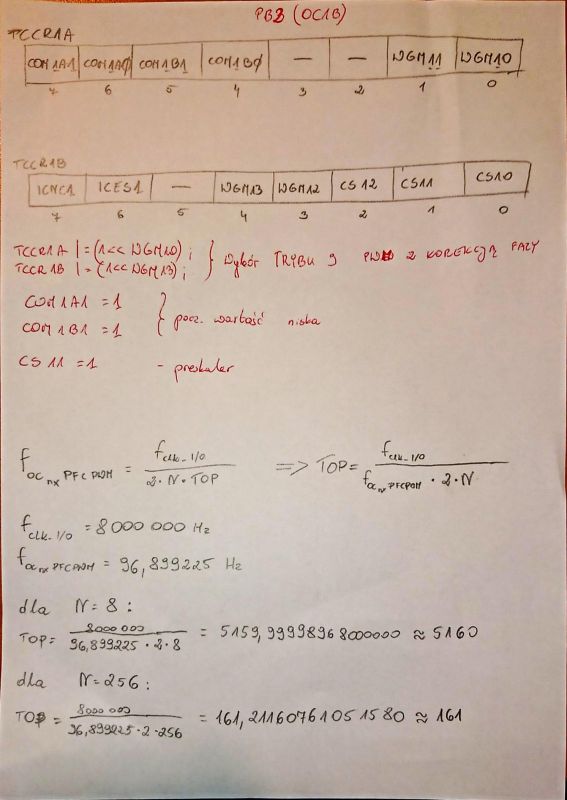 PB2 (OC1B)
TCCR1A
COM1A1 COM1A0 COM1B1 COM1B0 — — WGM11 WGM10
7 6 5 4 3 2 1 0
TCCR1B
ICNC1 ICES1 — WGM13 WGM12 CS12 CS11 CS10
7 6 5 4 3 2 1 0
TCCR1A |= (1<< WGM10); } Wybór TRYBU 9 PWM z KOREKCJĄ FAZY
TCCR1B |= (1<< WGM13);
COM1A1 = 1 } pocz. wartość niska
COM1B1 = 1
CS11 = 1 - preskaler
f_ocnx PFCPWM = f_clk_I/O / 2·N·TOP => TOP = f_clk_I/O / f_ocnxPFCPWM · 2·N
f_clk_I/O = 8000 000 Hz
f_ocnxPFCPWM = 96,899225 Hz
dla N = 8 :
TOP = 8000 000 / 96,899225 · 2 · 8 = 5159,9999896800000 ≈ 5160
dla N = 256 :
TOP = 8000 000 / 96,899225 · 2 · 256 = 161,21160761051580 ≈ 161